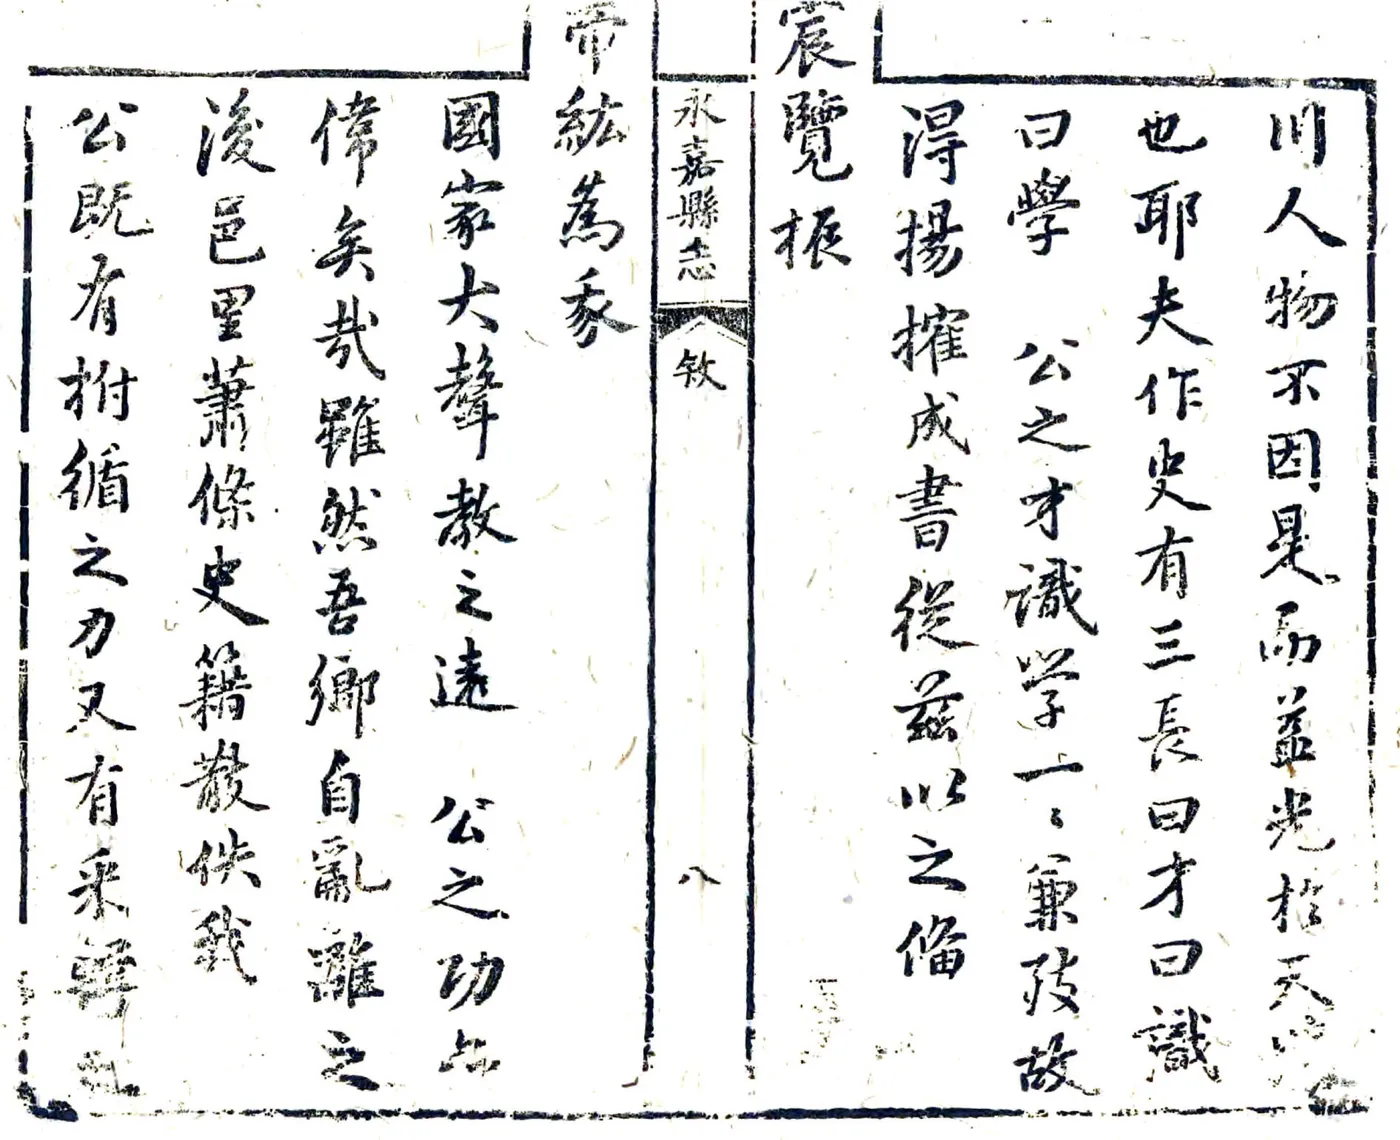 川人物不因是而益光於天
也耶夫作史有三長曰才曰識
曰學 公之才識学一〻兼致故
淂揚搉成書從茲以之俻
宸覽振
永嘉縣志
敘
八
帝紘為豕
國家大聲教之遠 公之功亦
偉矣哉雖然吾鄉自亂離之
後邑里蕭條史籍散佚我
公既有拊循之力又有采輯